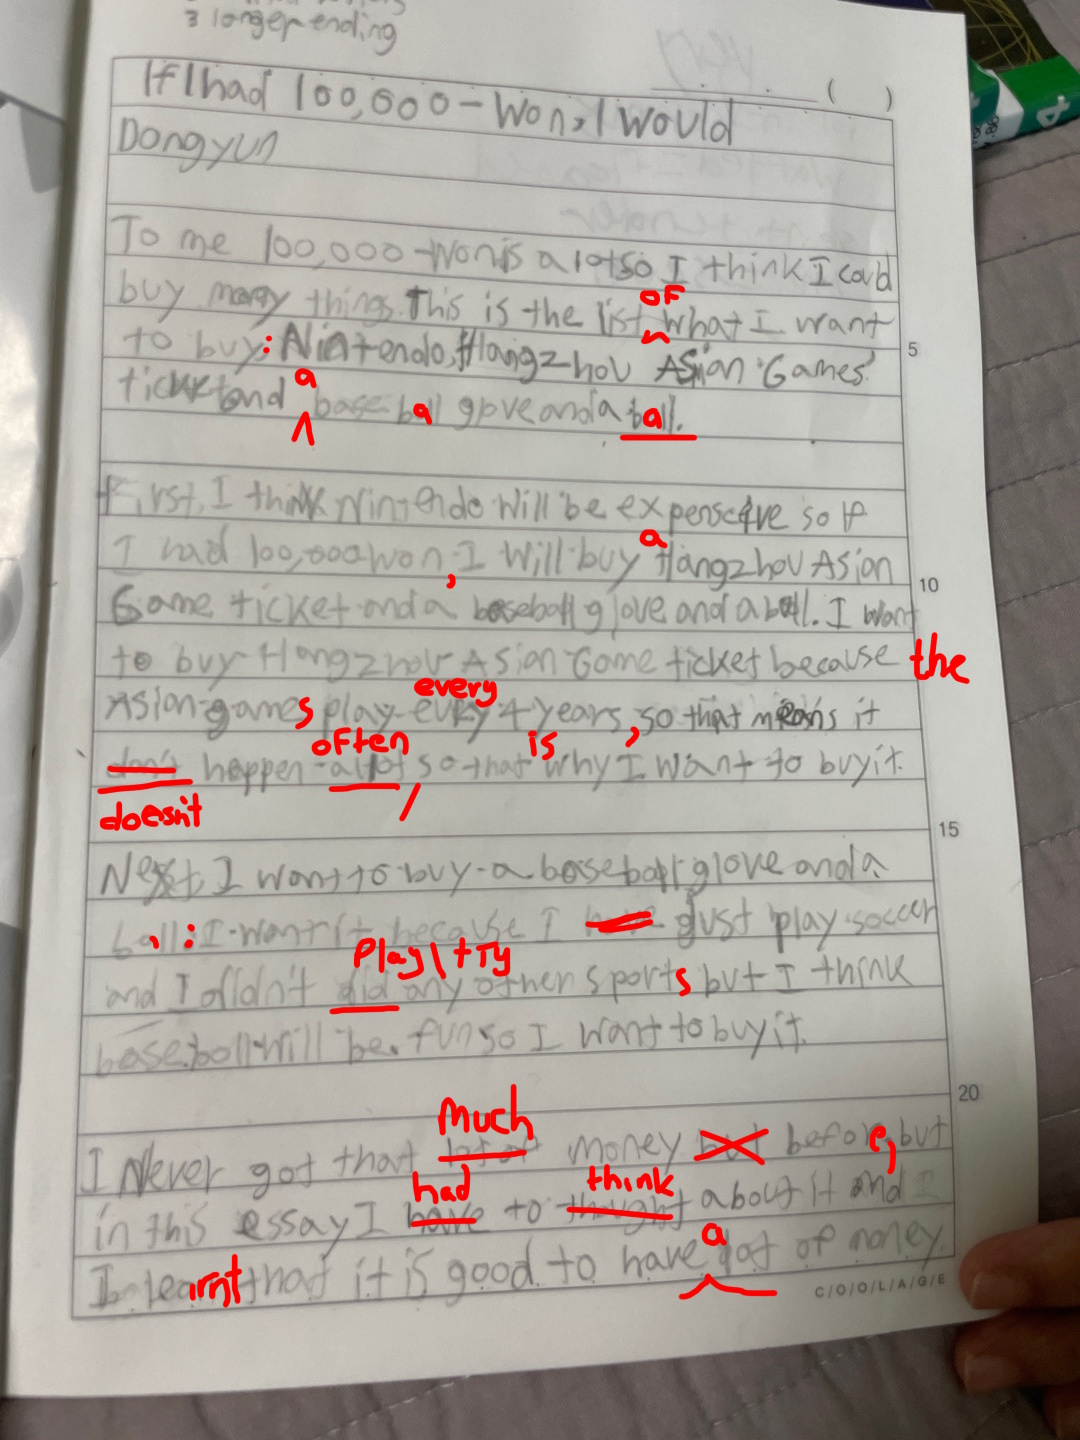 3 longer ending
( )
If I had 100,000-Won, I would
Dongyun
To me 100,000-Won is a lot so I think I could
buy many things. This is the list of what I want
to buy: Nintendo, Hangzhou Asian Games
ticket and a baseball glove and a ball.
First, I think Nintendo will be so If
I had 100,000 won, I will buy a Hangzhou Asian
Game ticket and a baseball glove and a ball. I want
to buy Hangzhou Asian Game ticket because the
every
Asian games play every 4 years, so that means it
often is
don't happen a lot so that why I want to buy it.
doesn't
15
Next, I want to buy a baseball glove and a
ball: I want it because I have just play soccer
Play \ try
and I didn't did any other sports but I think
baseball will be fun so I want to buy it.
20
much
I Never got that lot of money but before, but
had think
in this essay I have to thought about it and I
a
I learnt that it is good to have lot of money.
5
10
C/O/O/L/A/G/E